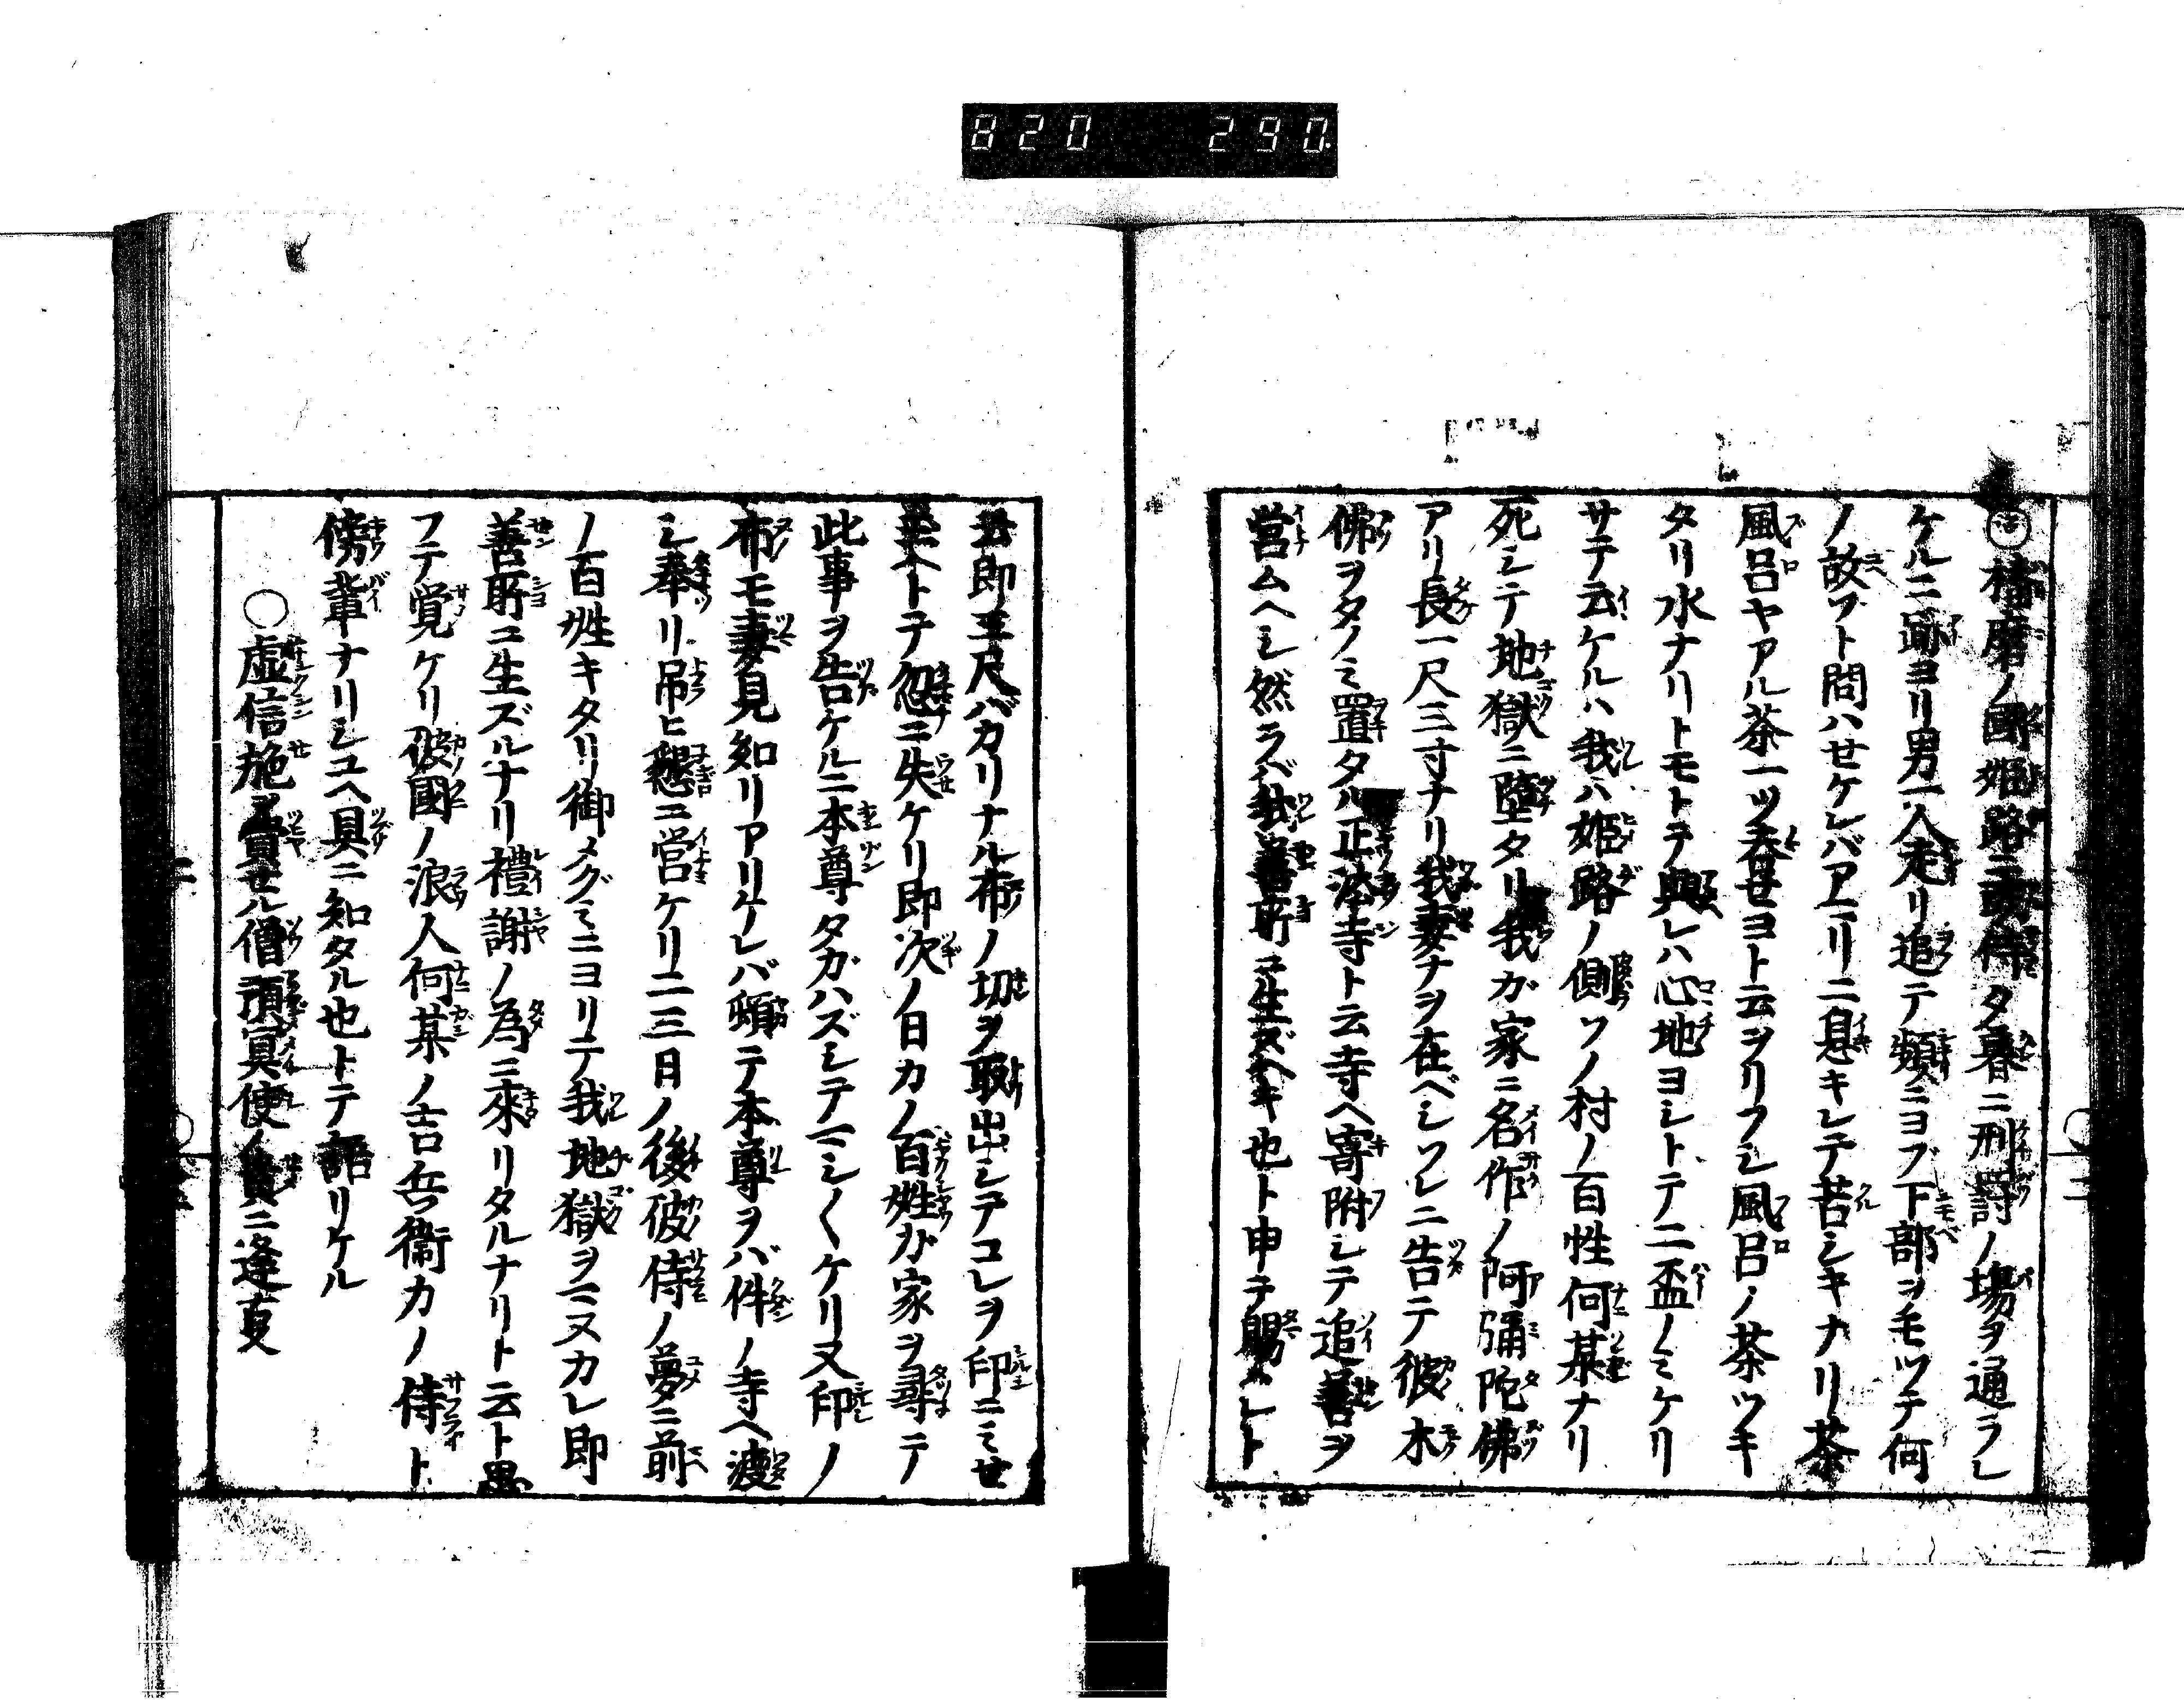 820 290
播磨ノ國姫路ニ或侍夕暮ニ刑罸ノ塲ヲ通ラレ
ケルニ跡ヨリ男一人走リ追テ頻ニヨブ下部ヲモツテ何
ノ故フト問ハセケレバアマリニ息キレテ苦シキナリ茶
風呂ヤアル茶一ツ呑セヨト云ヲリフシ風呂ノ茶ツキ
タリ水ナリトモトテ與レハ心地ヨシトテ二盃ノミケリ
サテ云ケルハ我ハ姫路ノ側ソノ村ノ百性何某ナリ
死シテ地獄ニ墮タリ我カ家ニ名作ノ阿彌陀佛
アリ長一尺三寸ナリ我妻ナヲ在ベシソレニ告テ彼木
佛ヲタノミ置タル正法寺ト云寺ヘ寄附シテ追善ヲ
営ムヘシ然ラバ我善所ニ生ズヘキ也ト申テ賜ハレト
云即三尺バカリナル布ノ切ヲ取出シテコレヲ印ニミせ
玉ヘトテ忽ニ失ケリ即次ノ日カノ百姓カ家ヲ尋テ
此事ヲ告ケルニ本尊タガハズシテマシ〱ケリ又印ノ
布モ妻見知リアリケレバ頓テ本尊ヲバ件ノ寺ヘ渡
シ奉リ吊ヒ懇ニ営ケリ二三日ノ後彼侍ノ夢ニ前
ノ百姓キタリ御メグミニヨリテ我地獄ヲマヌカレ即
善所ニ生ズルナリ禮謝ノ為ニ來リタルナリト云ト思
フテ覚ケリ彼國ノ浪人何某ノ吉兵衛カノ侍ト
傍輩ナリシユヘ具ニ知タル也トテ語リケル
○虚信施ヲ費せル僧預冥使ノ責ニ逢事